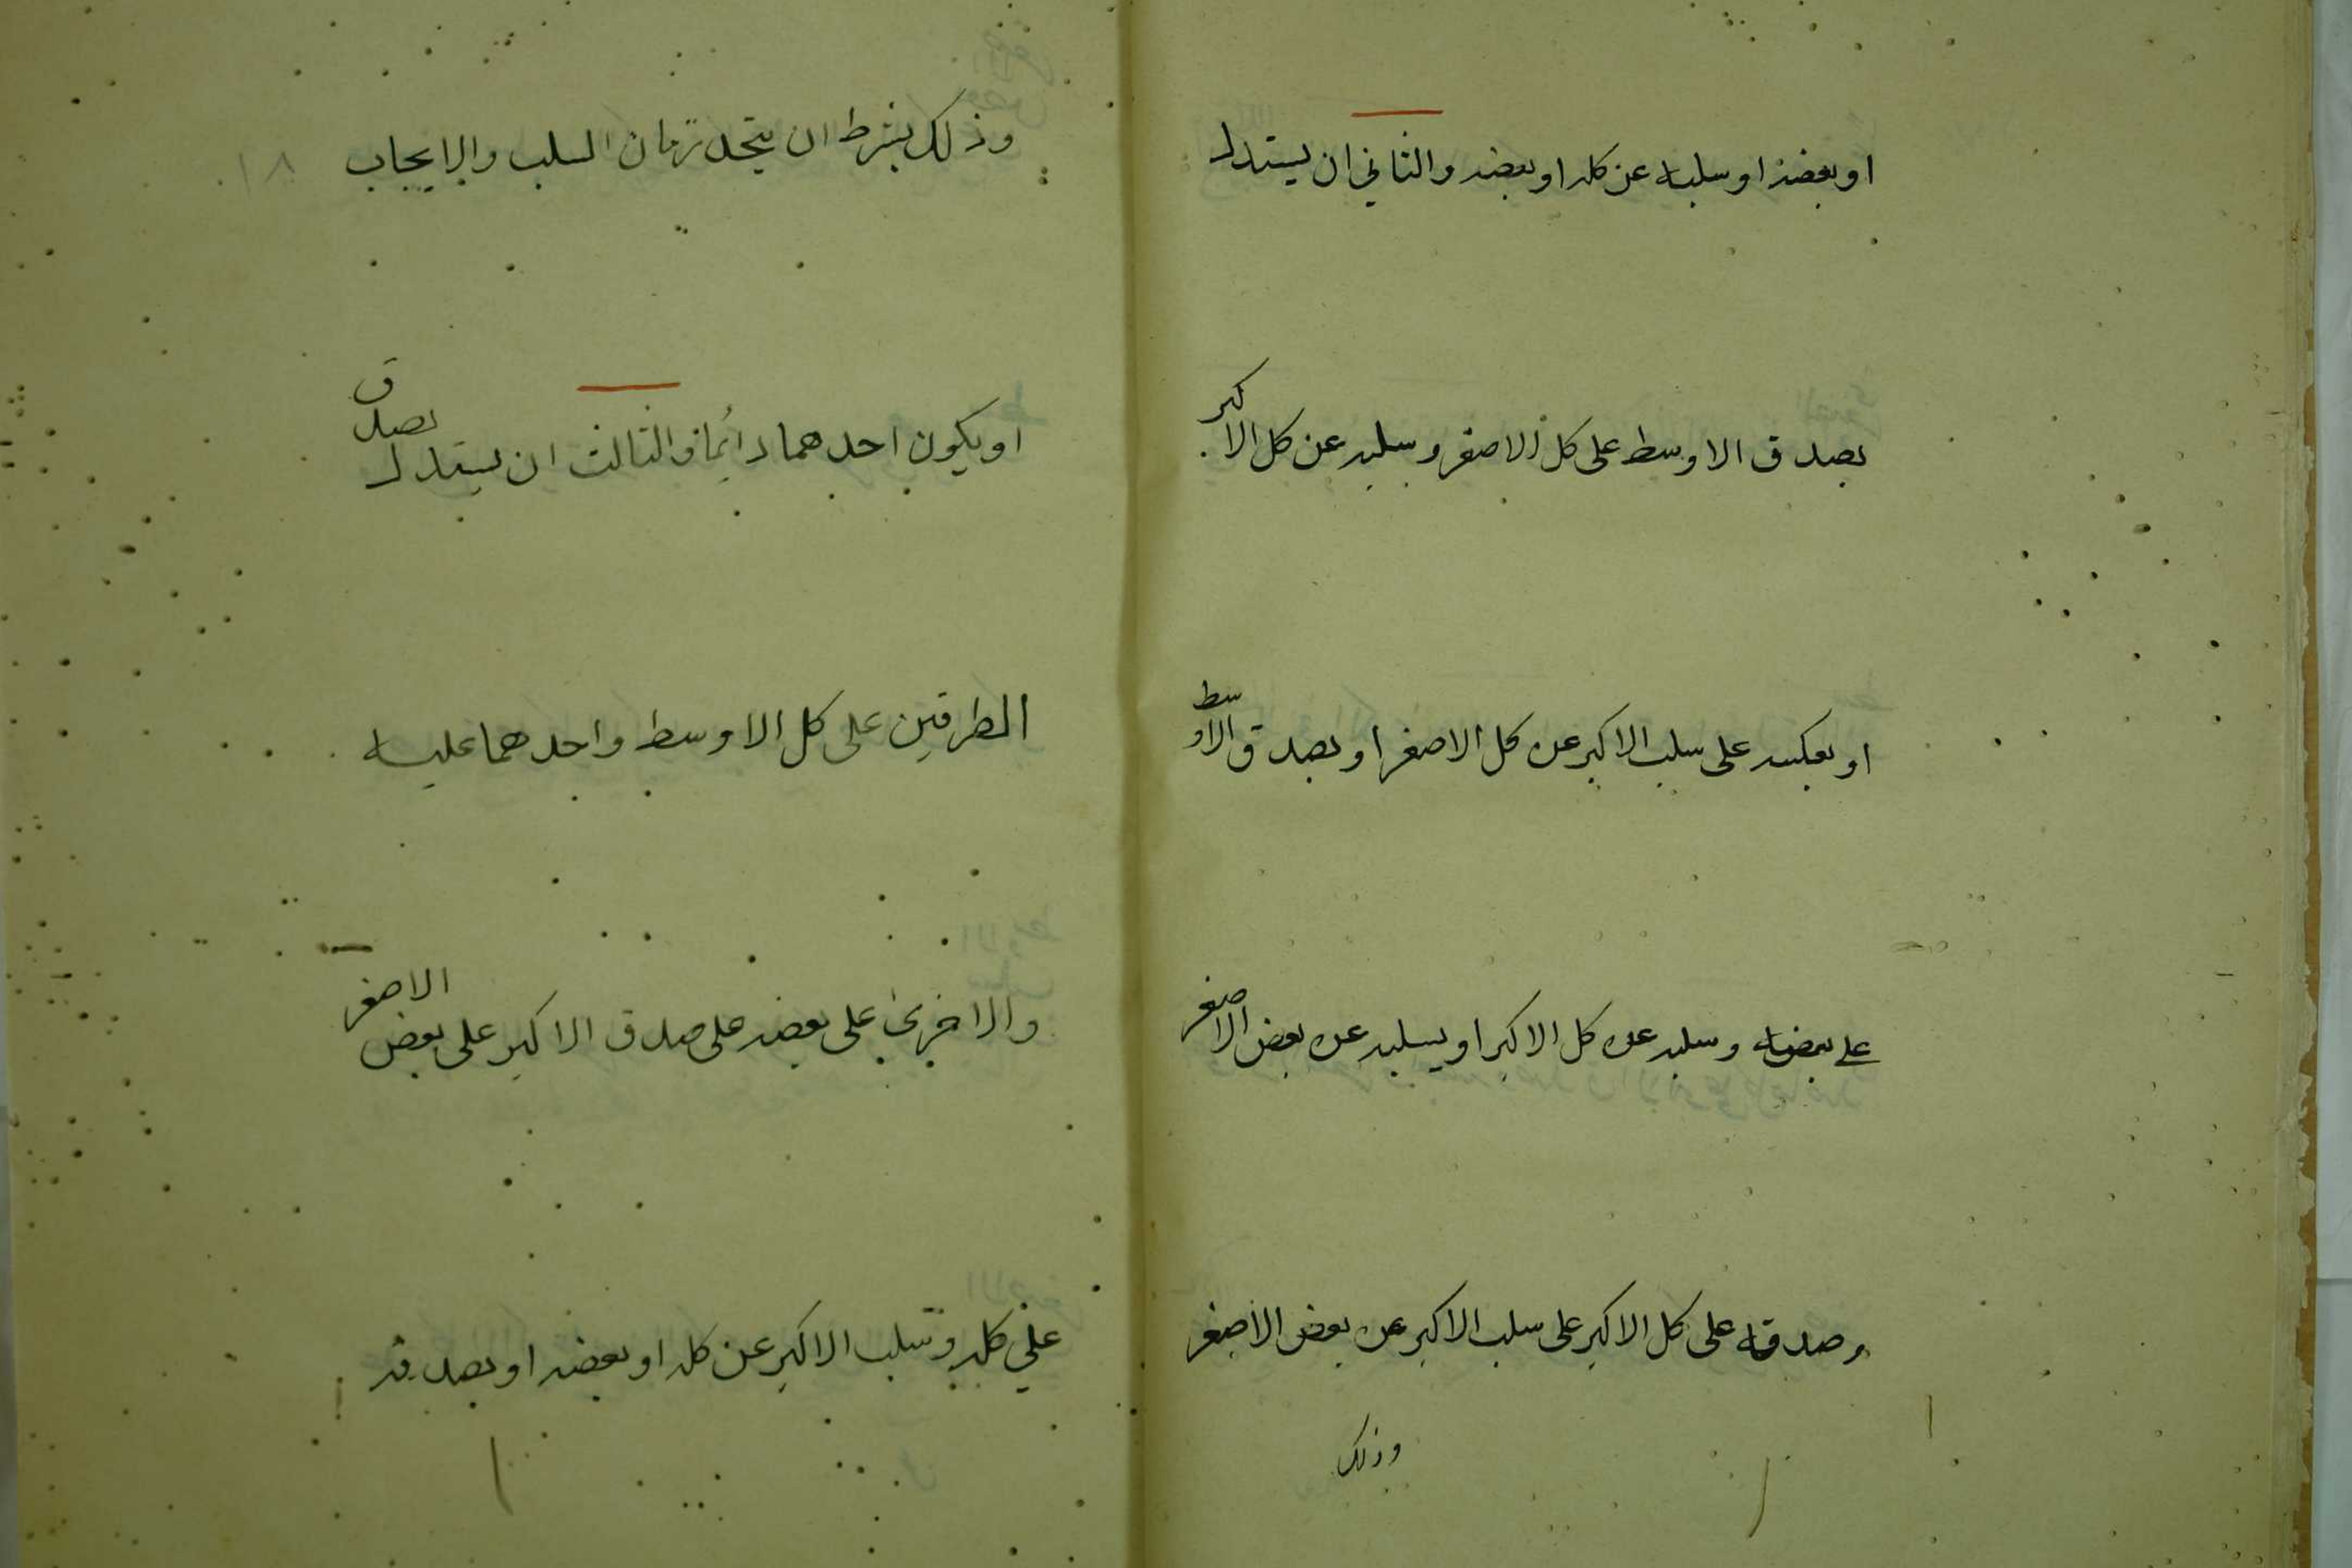 او بعضه او سلبه عن كله او بعضه والثاني ان يستدل
بصدق الاوسط على كل الاصغر وسلبه عن كل الاكبر
او بعكسه على سلب الاكبر عن كل الاصغر او بصدق الاوسط
على بعضه وسلبه عن كل الاكبر او بسلبه عن بعض الاصغر
وصدقه على كل الاكبر على سلب الاكبر عن بعض الاصغر
وذلك
وذلك بشرط ان يتحد زمان السلب والايجاب
او يكون احدهما دائما والثالث ان يستدل بصدق
الطرفين على كل الاوسط واحدهما عليه
والاخرى على بعضه على صدق الاكبر على بعض الاصغر
على كله وسلب الاكبر عن كله او بعضه او بصدقه